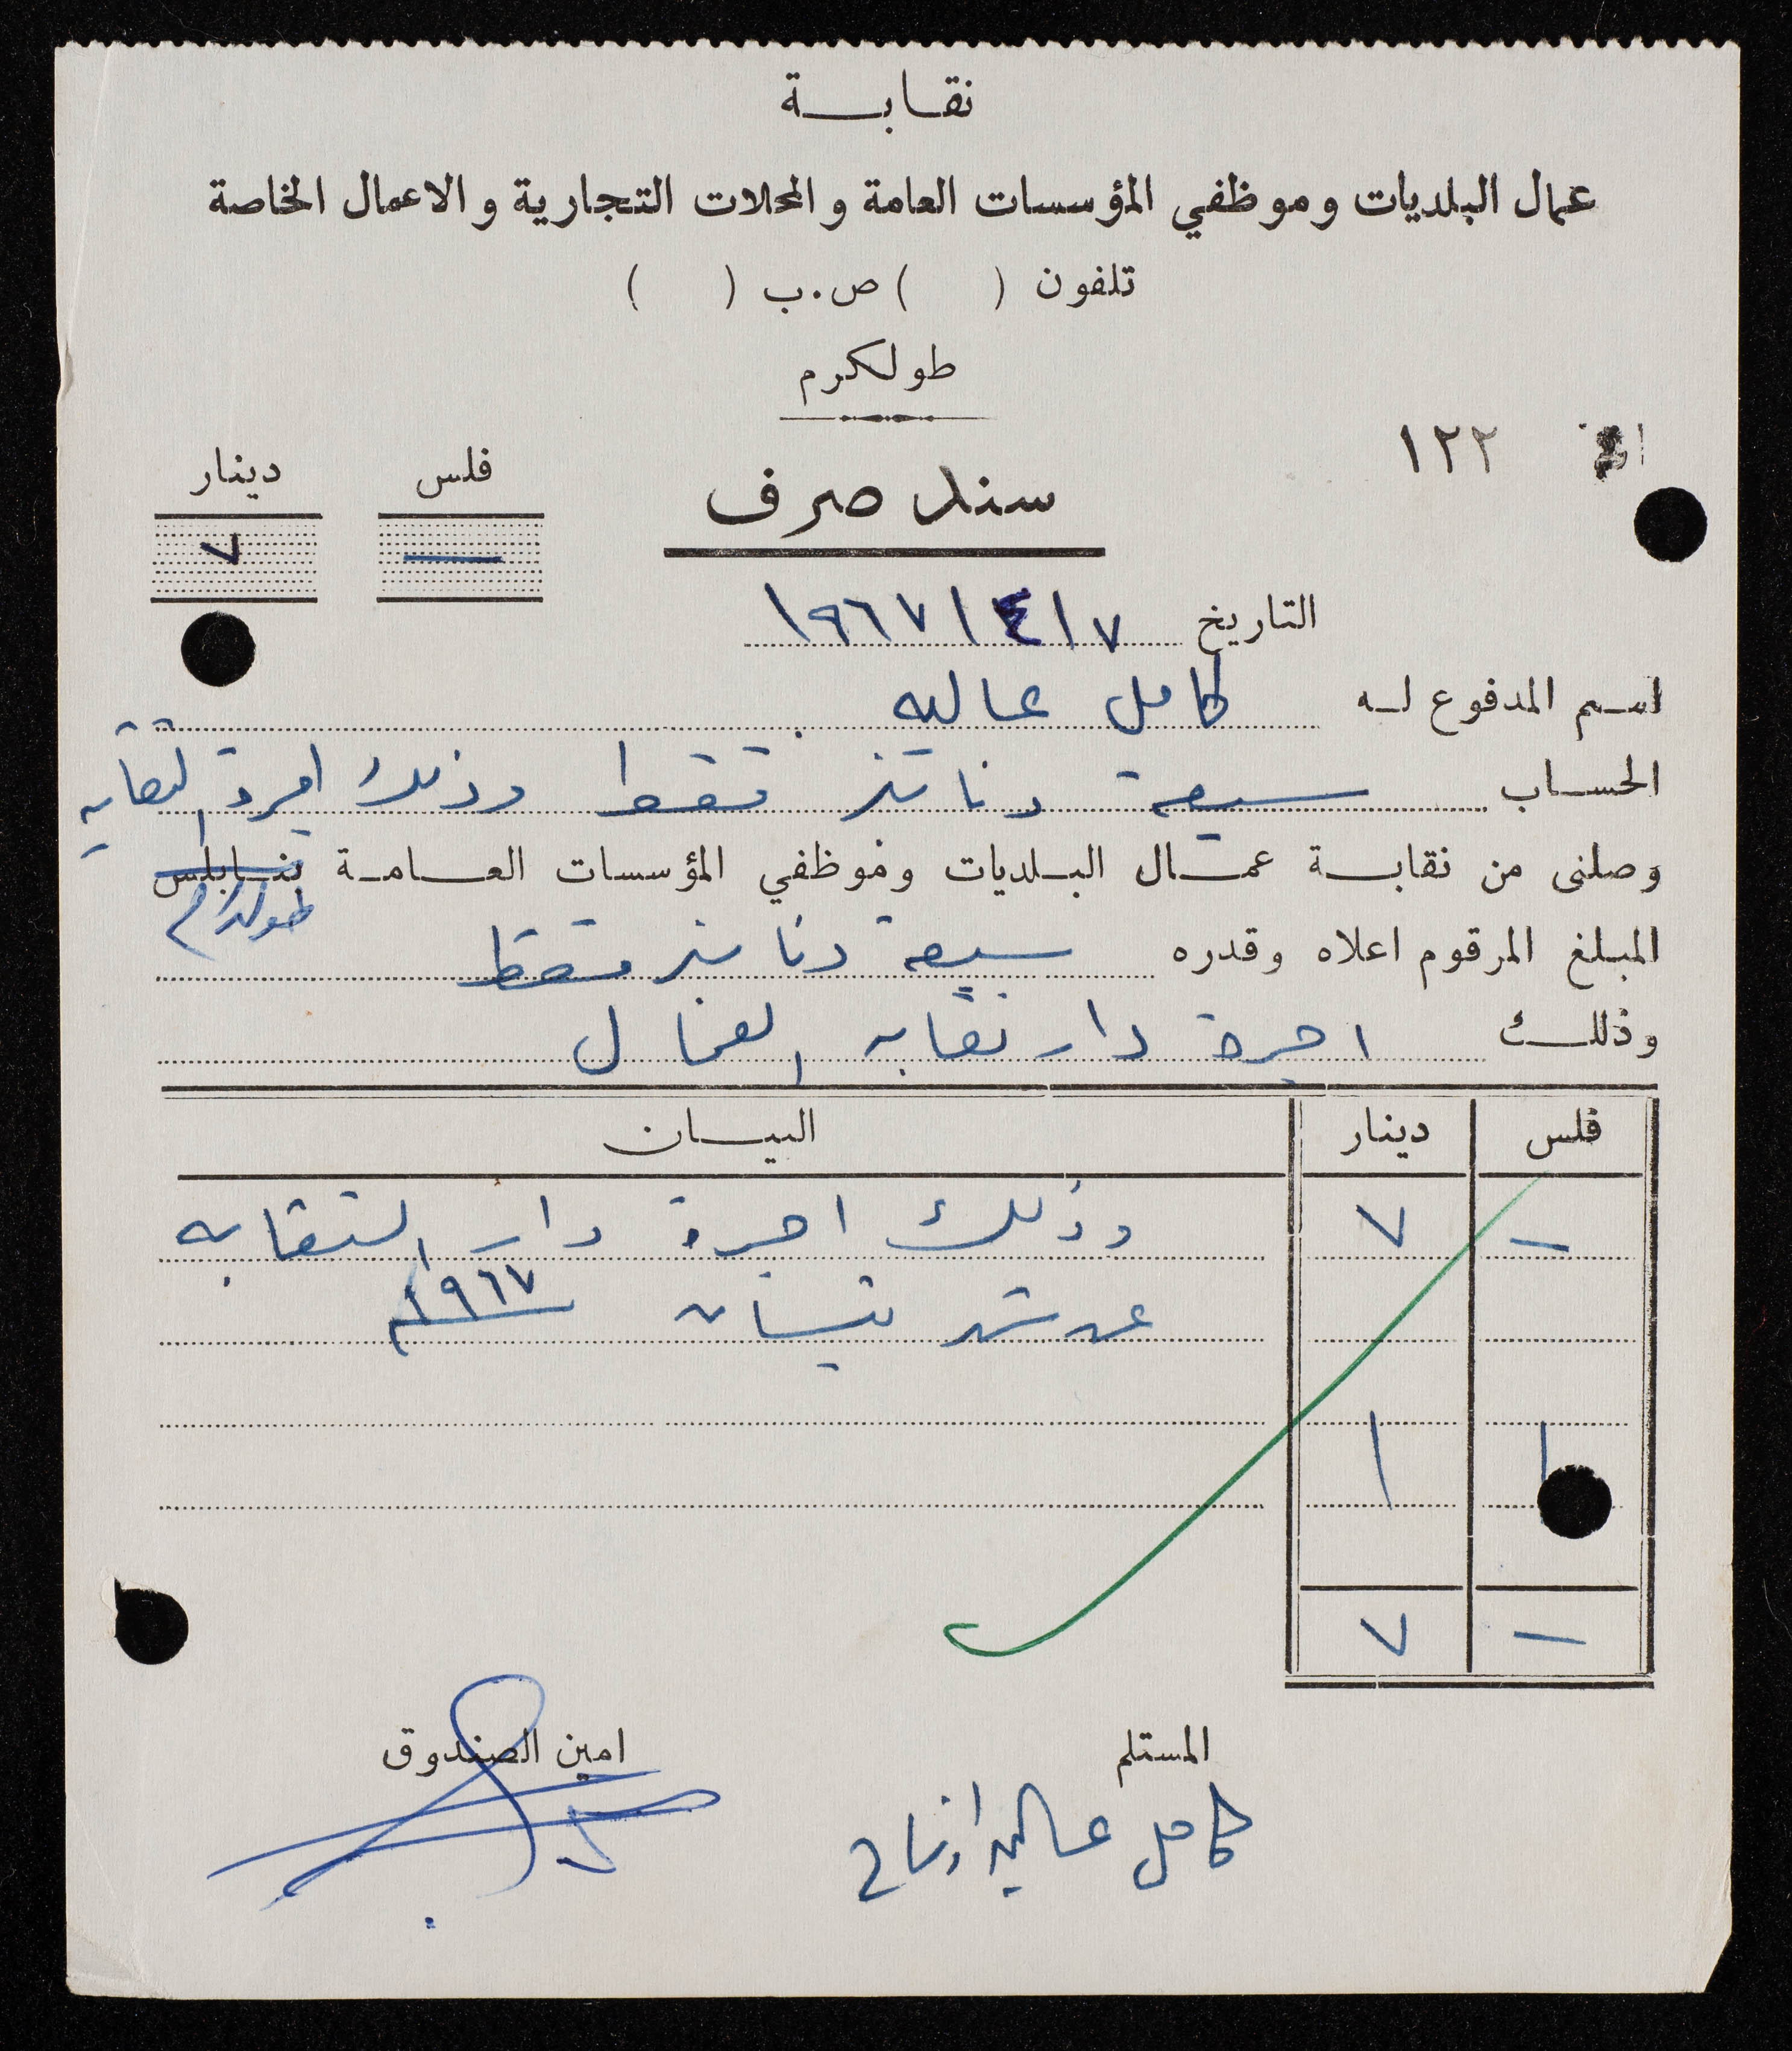 نقابة
عمال البلديات وموظفي المؤسسات العامة والمحلات التجارية والاعمال الخاصة
تلفون (      ) ص.ب (      )
طولكرم
١٢٢
دينار فلس
سند صرف
٧ —
التاريخ ٧ / ٤ / ١٩٦٧
اسم المدفوع له كامل عاليه
الحساب سبعة دنانير فقط وذلك اجرة النقابه
وصلني من نقابة عمال البلديات وموظفي المؤسسات العامة بنابلس
طولكرم
المبلغ المرقوم اعلاه وقدره سبعة دنانير فقط
وذلك اجرة دار نقابه العمال
فلس دينار البيان
— ٧ وذلك اجرة دار النقابه
عن شهر نيسان ١٩٦٧م
— ٧
المستلم امين الصندوق
كامل عاليه